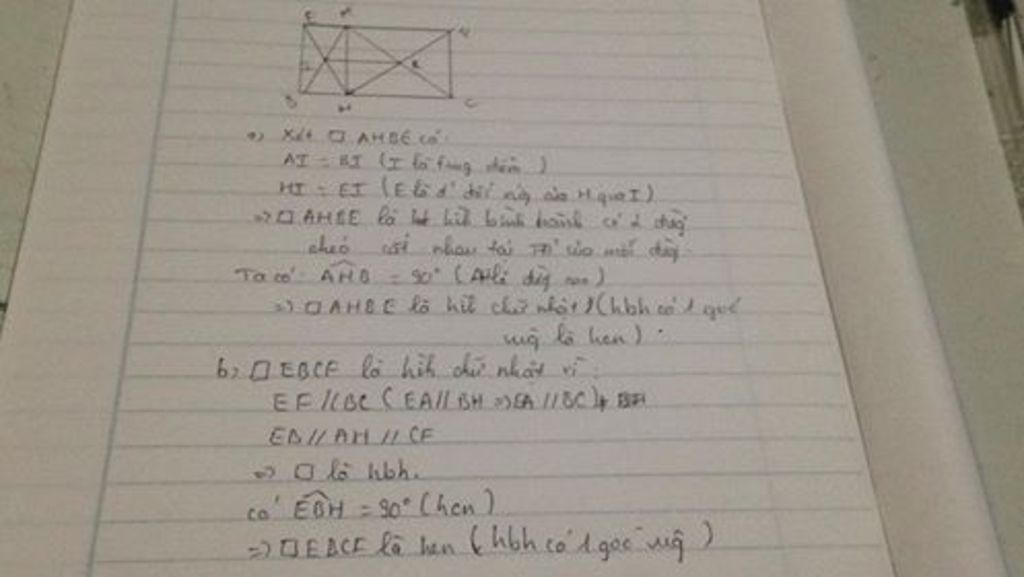 E A F
I K
B H C
a) Xét □ AHBE có:
AI = BI (I là trung điểm)
HI = EI (E là đ' đối xứng của H qua I)
=> □ AHBE là hìh bình hành có 2 đường
chéo cắt nhau tại TĐ' của mỗi đg
Ta có: AHB = 90° (AH là đg cao)
=> □ AHBE là hìh chữ nhật (hbh có 1 góc
vuông là hcn)
b) □ EBCF là hìh chữ nhật vì:
EF // BC (EA // BH => EA // BC)
EB // AH // CF
=> □ là hbh.
có EBH = 90° (hcn)
=> □ EBCF là hcn (hbh có 1 góc vg)